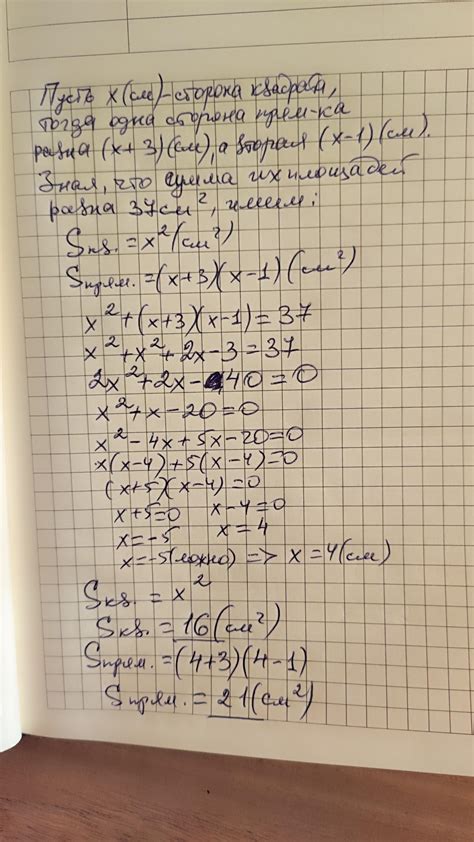 Пусть x(см)-сторона квадрата,
тогда одна сторона прям-ка
равна (x+3)(см), а вторая (x-1)(см).
Зная, что сумма их площадей
равна 37см², имеем:
Sкв. = x²(см²)
Sпрям. = (x+3)(x-1)(см²)
x²+(x+3)(x-1)=37
x²+x²+2x-3=37
2x²+2x-40=0
x²+x-20=0
x²-4x+5x-20=0
x(x-4)+5(x-4)=0
(x+5)(x-4)=0
x+5=0 x-4=0
x=-5 x=4
x=-5(ложно) => x=4(см)
Sкв. = x²
Sкв. = 16(см²)
Sпрям. = (4+3)(4-1)
Sпрям. = 21(см²)